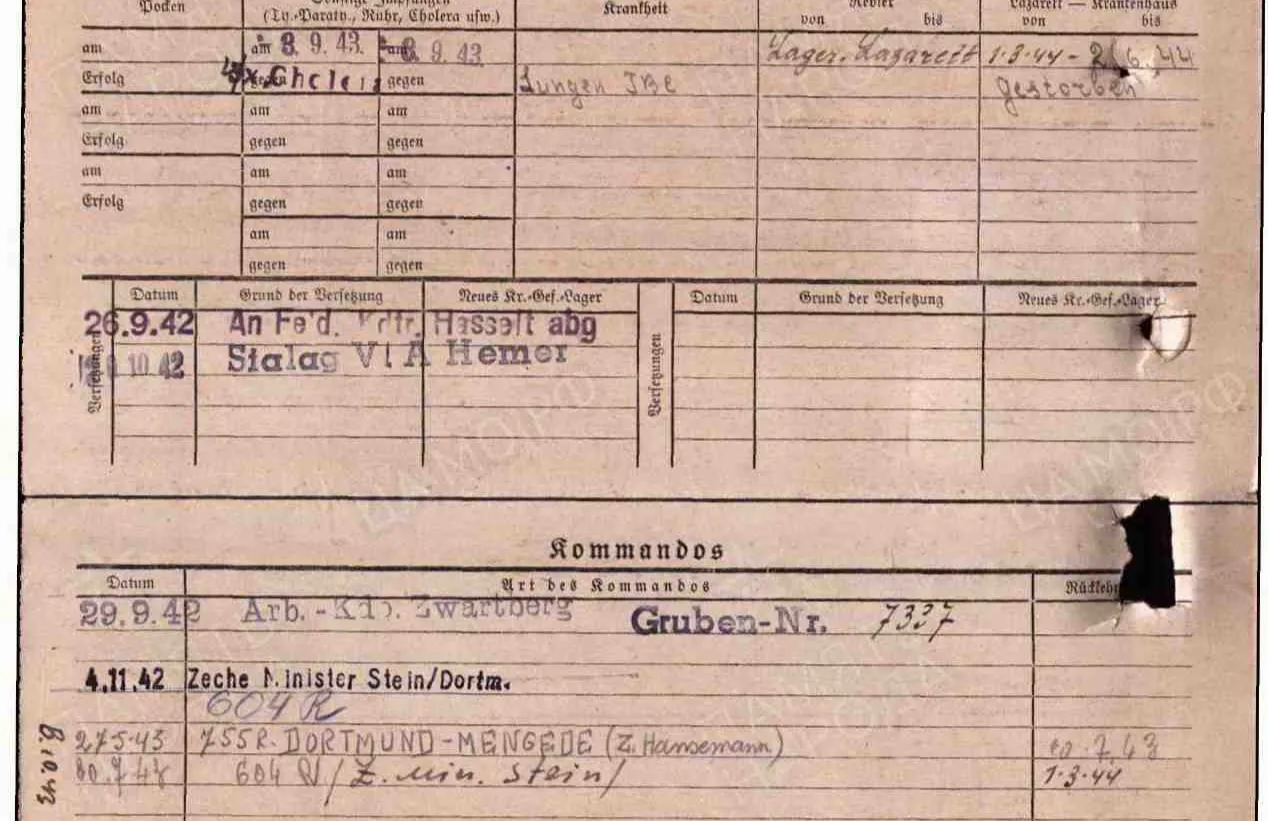 Pocken (Ty.-Paraty., Ruhr, Cholera usw.) Krankheit Revier von bis Lazarett — Krankenhaus von bis
am am 8. 9. 43. am 8 9. 43. Lager-Lazarett 1·3·44 - 2 6. 44
Erfolg gegen gegen Lungen TBc gestorben
am am am
Erfolg gegen gegen
am am am
Erfolg gegen gegen
am am
gegen gegen
Versetzungen Datum Grund der Versetzung Neues Kr.-Gef.-Lager Versetzungen Datum Grund der Versetzung Neues Kr.-Gef.-Lager
26.9.42 An Feld. Kdtr. Hasselt abg
10 42 Stalag VI A Hemer
ЦАМО РФ
Kommandos
Datum Art des Kommandos Rückkehr
29.9.42 Arb.-Kdo. Zwartberg Gruben-Nr. 7337
4.11.42 Zeche Minister Stein/Dortm.
604 R
27·5·43 755 R. DORTMUND-MENGEDE (Z. Hansemann) 10.7.43
10.7.43 604 R/ Z. Min. Stein/ 1·3·44